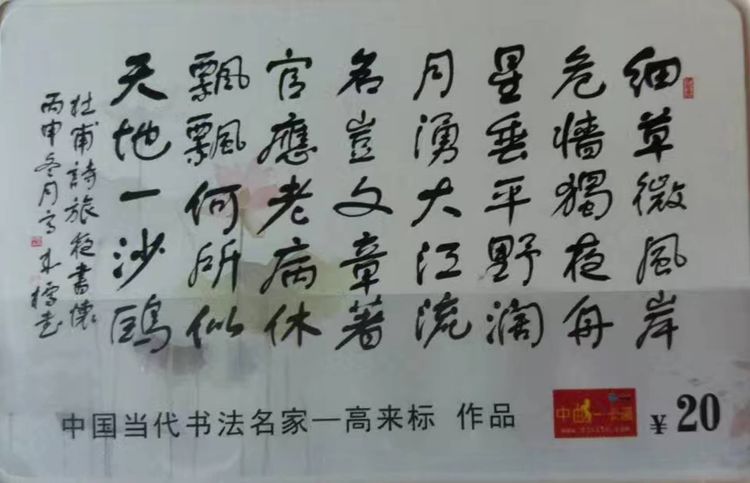 細草微風岸
危檣獨夜舟
星垂平野阔
月湧大江流
名豈文章著
官應老病休
飄飄何所似
天地一沙鷗
杜甫詩旅夜書懷
丙申冬月高来標书
中国当代书法名家—高来标 作品
¥20